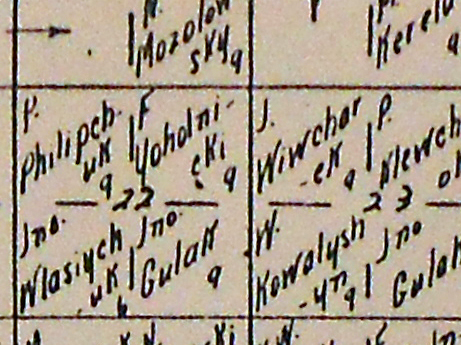 N. Mozolow
sky 9
Kerelu
P. Philipch-
uk 9
F. Yoholni-
cki 9
22
Jno. Wlasiych
-uk
Jno. Gulak
9
J. Wiwchar
-ek 9
P. Klewch
23
W. Kowalysh
-yn 9
Jno Gulak